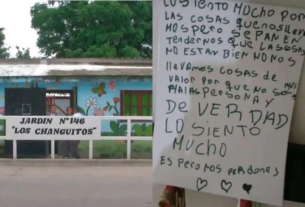 JARDIN Nº146
"LOS CHANGUITOS"
LO SIENTO MUCHO POR
LAS COSAS QUE NOS lleva
MOS PERO SEPAN EN
TENDERNOS QUE LAS COSAS
NO ESTAN BIEN NO NOS
llevamos COSAS DE
VALOR POR QUE NO
MALAS PERSONA Y
DE VERDAD
LO SIENTO
MUCHO
ESPERO NOS PERDONES